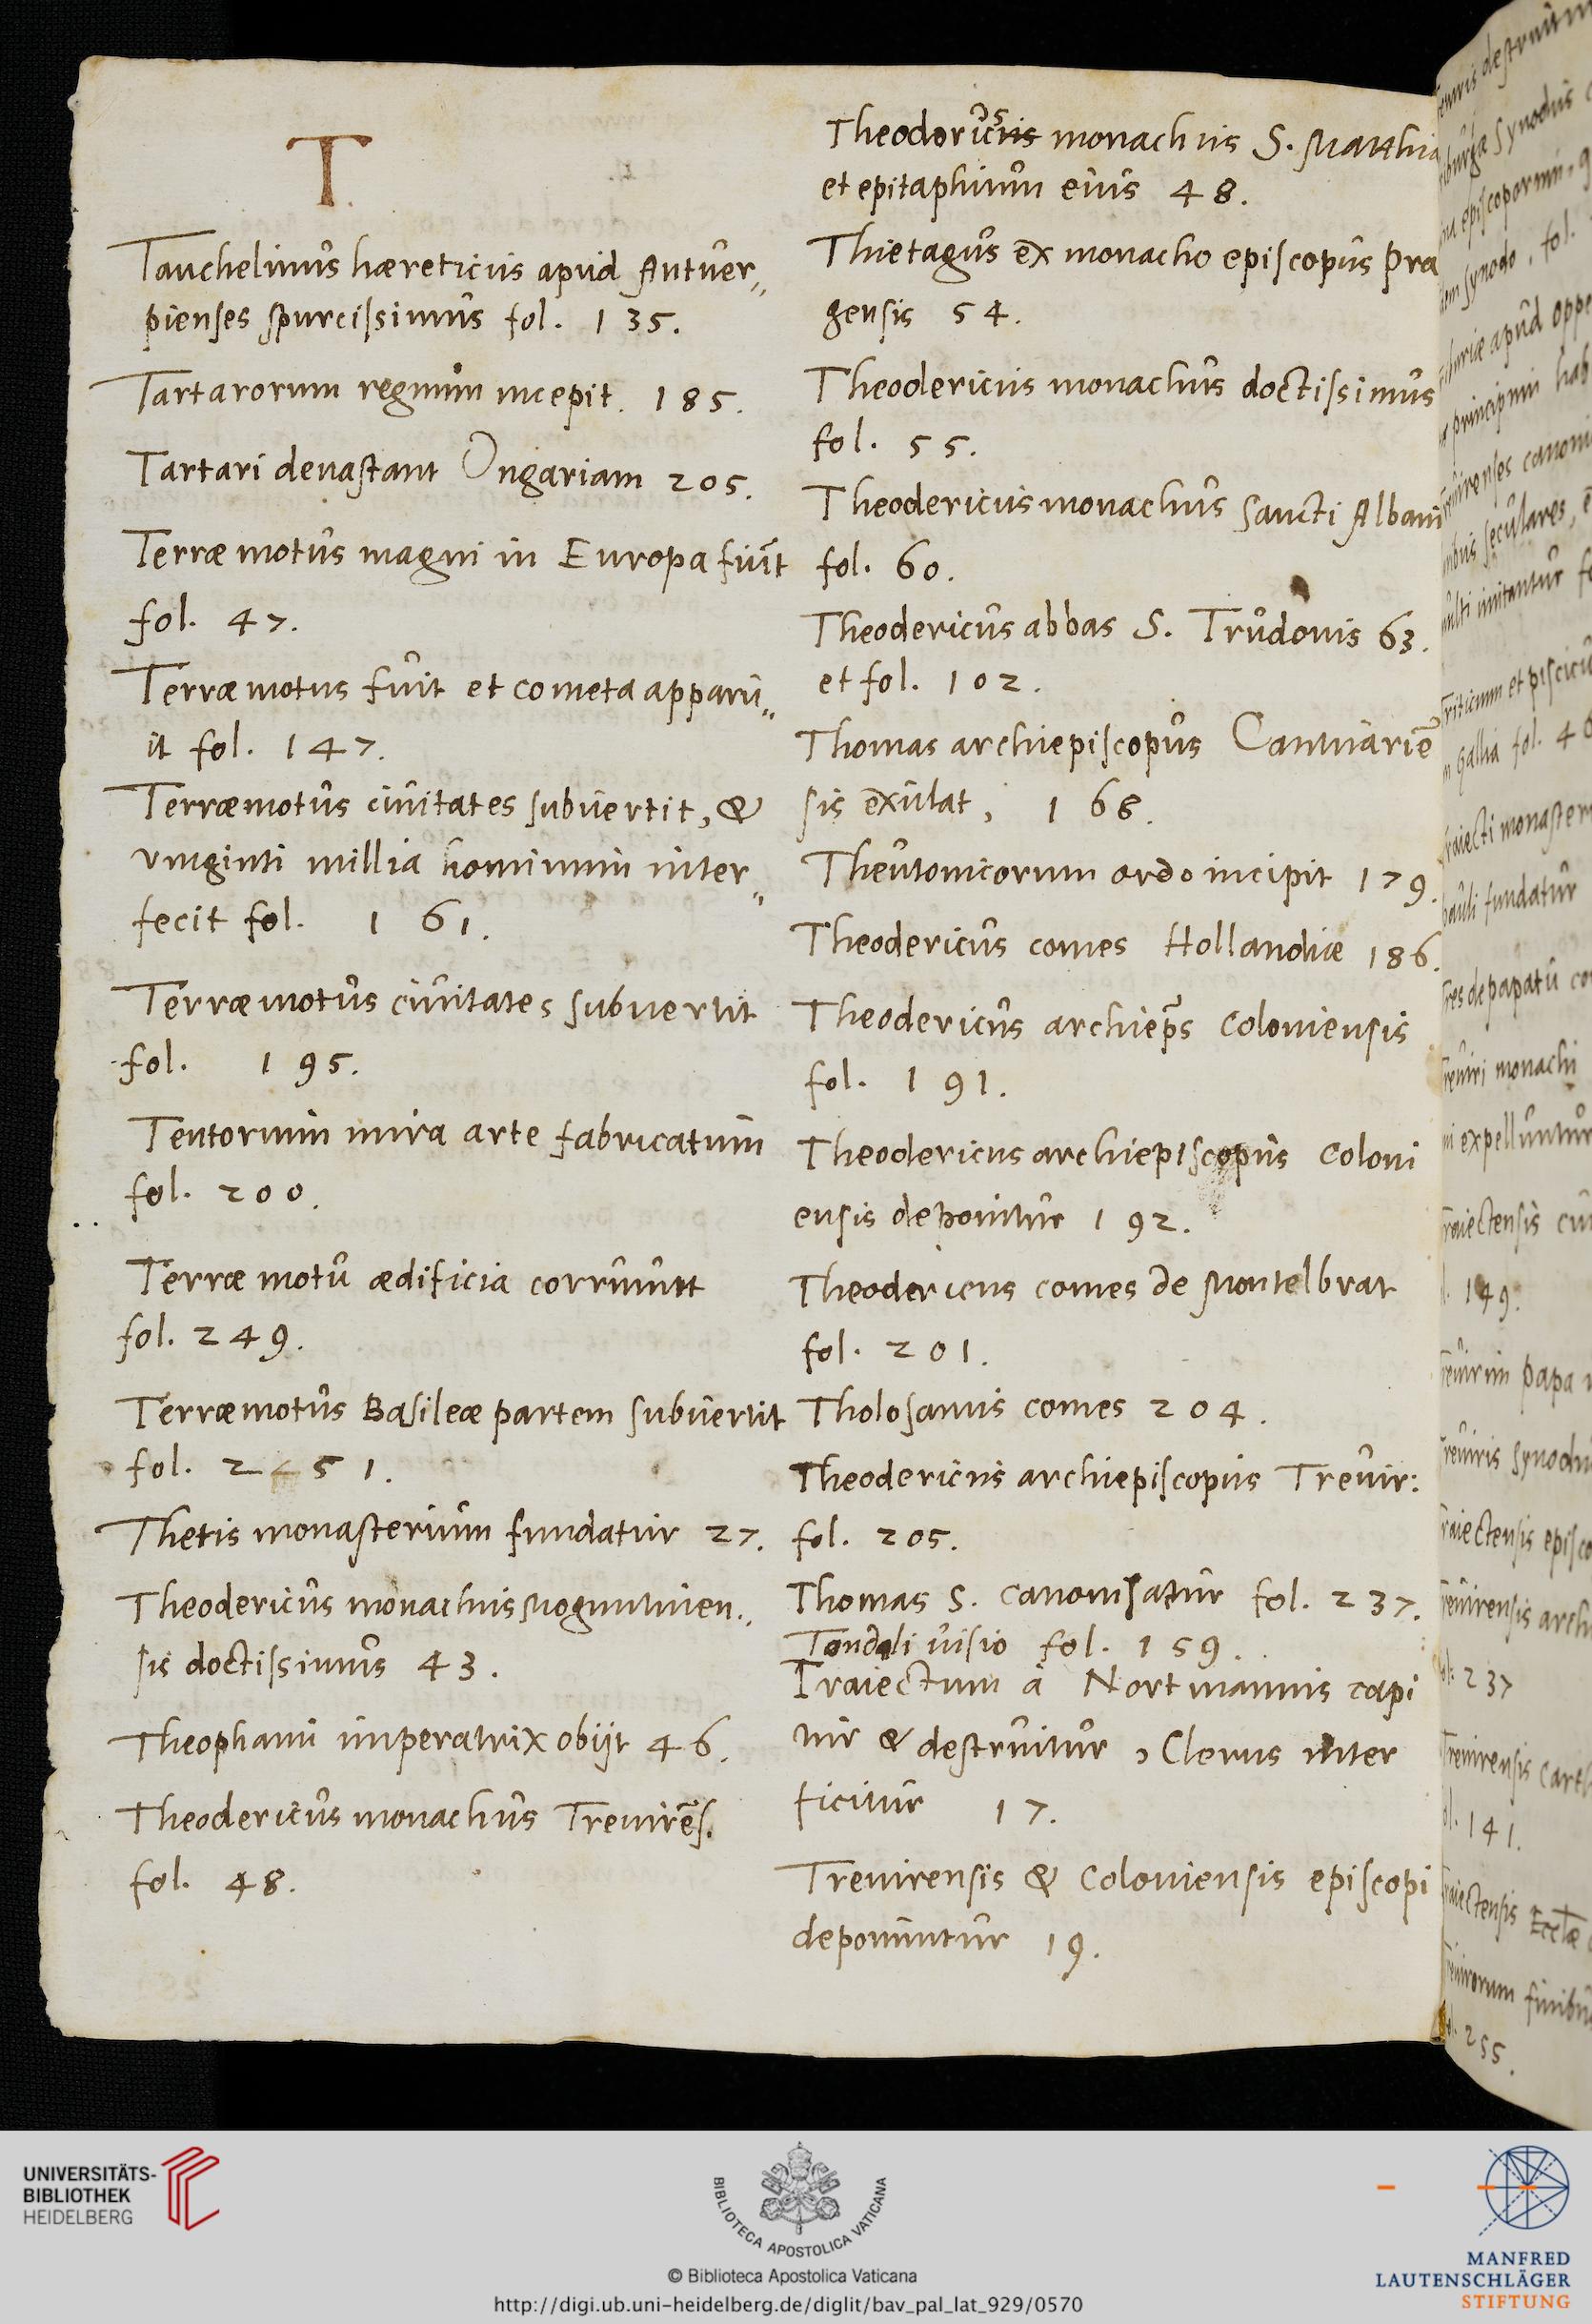 T
Tanchelinus hæreticus apud Antuer„
pienses spurcissimus fol. 135.
Tartarorum regnum incepit. 185.
Tartari deuastant Ongariam 205.
Terræmotus magni in Europa fiūt
fol. 47.
Terræmotus fuit et cometa apparu„
it fol. 147.
Terræmotus ciuitates subuertit, &
uiginti millia hominum inter„
fecit fol. 161.
Terræmotus ciuitates subuertit
fol. 195.
Tentorium mira arte fabricatum
fol. 200.
Terræ motu ædificia corruunt
fol. 249.
Terræmotus Basileæ partem subuertit
fol. 251.
Thetis monasterium fundatur 27.
Theodericus monachus Moguntinen„
sis doctissimus 43.
Theophani imperatrix obijt 46.
Theodericus monachus Treuirēs.
fol. 48.
Theodoricus monachus S. Matthiæ
et epitaphium eius 48.
Thietagus ex monacho episcopus Pra
gensis 54.
Theodericus monachus doctissimus
fol. 55.
Theodericus monachus Sancti Albani
fol. 60.
Theodericus abbas S. Trudonis 63.
et fol. 102.
Thomas archiepiscopus Cantuariē
sis exulat, 168.
Theutonicorum ordo incipit 179.
Theodericus comes Hollandiæ 186.
Theodericus archiep̄s Coloniensis
fol. 191.
Theodericus archiepiscopus Coloni
ensis deponitur 192.
Theodericus comes de Montelbrat
fol. 201.
Tholosanus comes 204.
Theodericus archiepiscopus Treuir:
fol. 205.
Thomas S. canonisatur fol. 237.
Tondali uisio fol. 159.
Traiectum à Nortmannis capi
tur & destruitur, Clerus inter
ficitur 17.
Treuirensis & Coloniensis episcopi
deponuntur 19.
UNIVERSITÄTS-
BIBLIOTHEK
HEIDELBERG
BIBLIOTECA APOSTOLICA VATICANA
© Biblioteca Apostolica Vaticana
http://digi.ub.uni-heidelberg.de/diglit/bav_pal_lat_929/0570
MANFRED
LAUTENSCHLÄGER
STIFTUNG